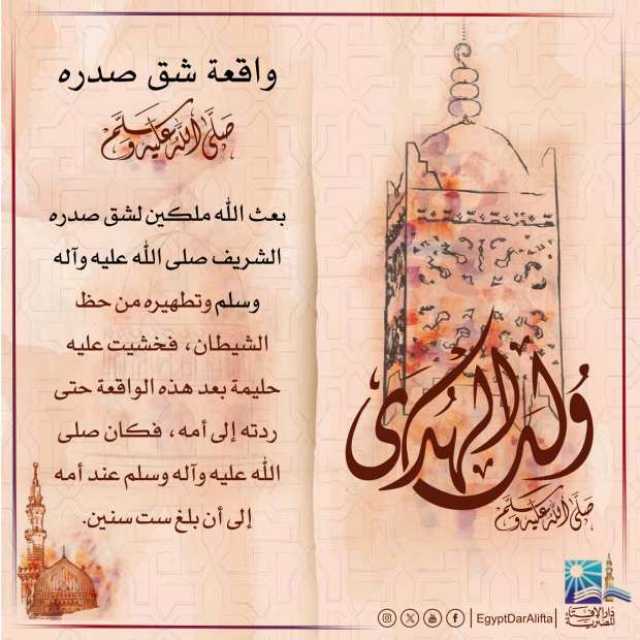 واقعة شق صدره
صلى الله عليه وسلم
بعث الله ملكين لشق صدره
الشريف صلى الله عليه وآله
وسلم وتطهيره من حظ
الشيطان، فخشيت عليه
حليمة بعد هذه الواقعة حتى
ردته إلى أمه، فكان صلى
الله عليه وآله وسلم عند أمه
إلى أن بلغ ست سنين.
وُلد الهُدى
صلى الله عليه وسلم
EgyptDarAlifta
دار الإفتاء
المصرية